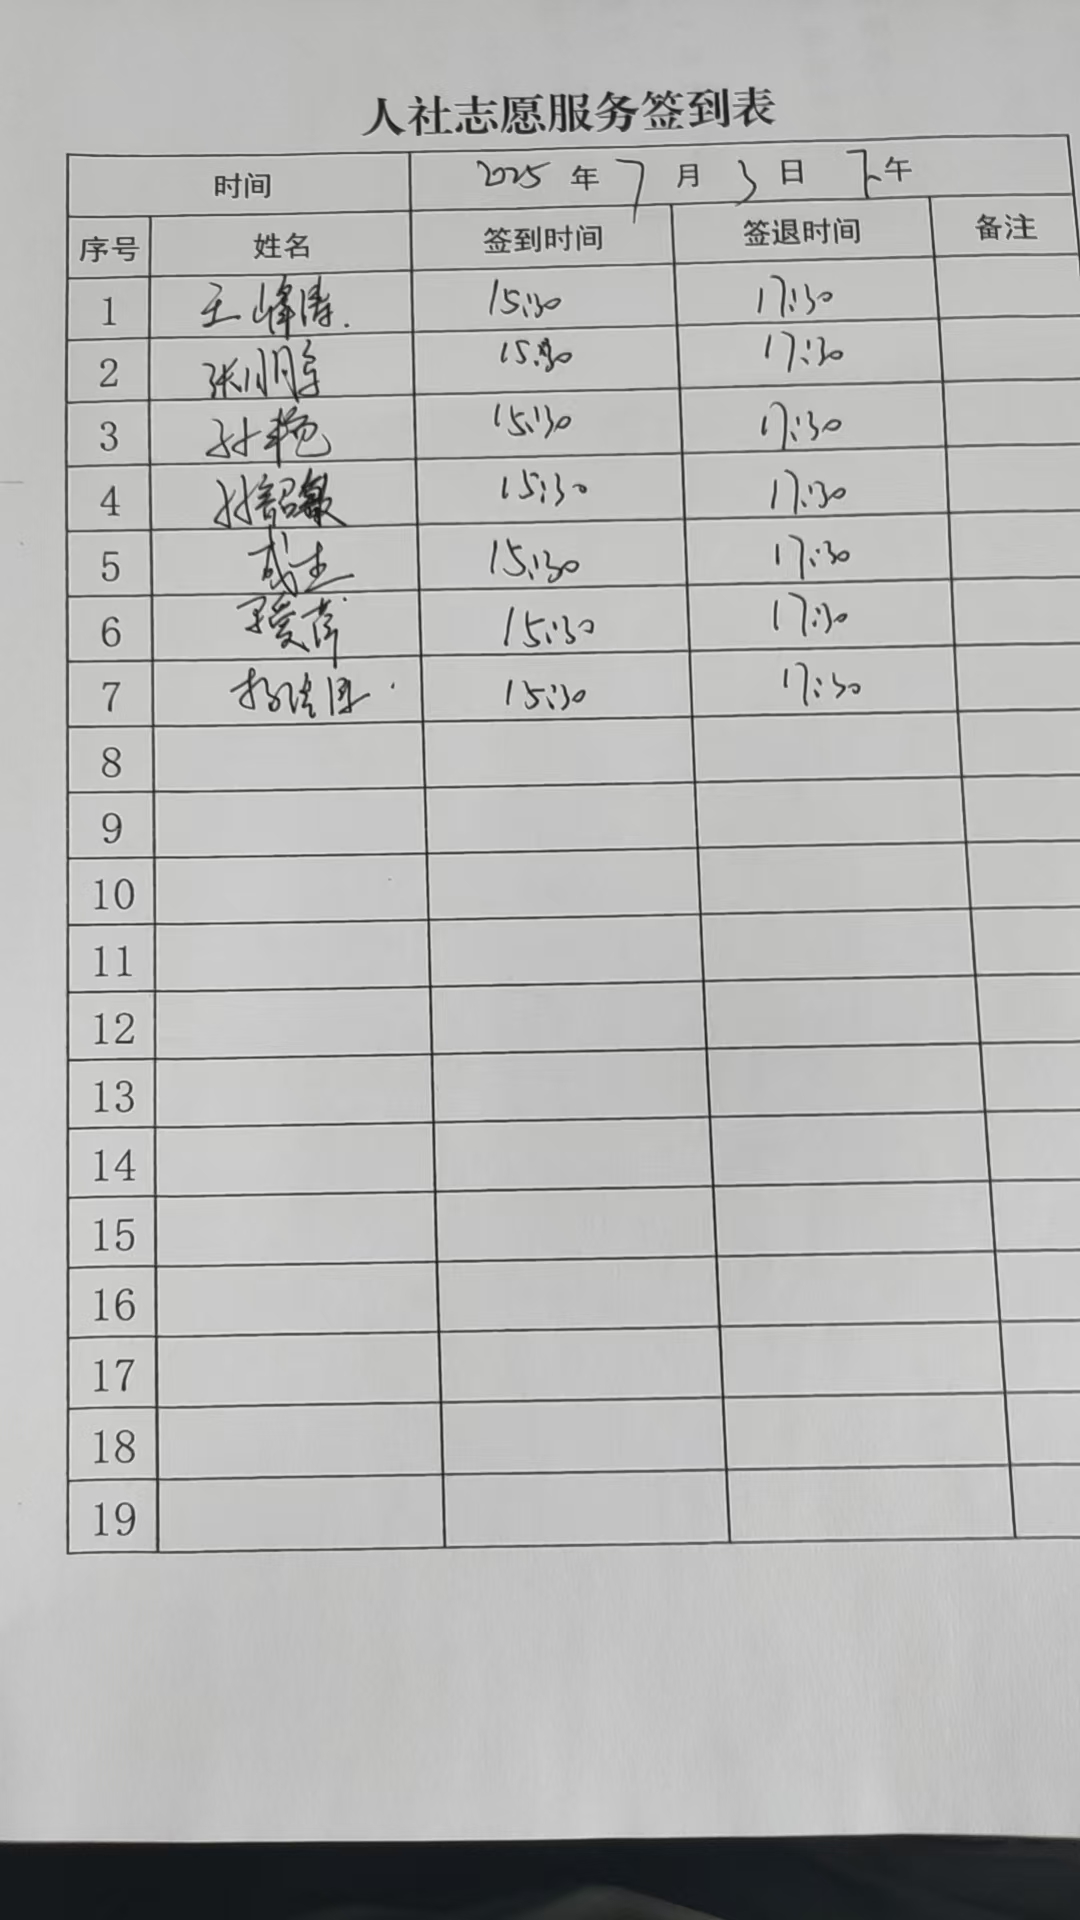 人社志愿服务签到表
时间 2025 年 7 月 3 日 下午
序号 姓名 签到时间 签退时间 备注
1 王峰涛 15:30 17:30
2 张 15:30 17:30
3 孙艳 15:30 17:30
4 孙韶敏 15:30 17:30
5 成杰 15:30 17:30
6 15:30 17:30
7 杨 15:30 17:30
8
9
10
11
12
13
14
15
16
17
18
19